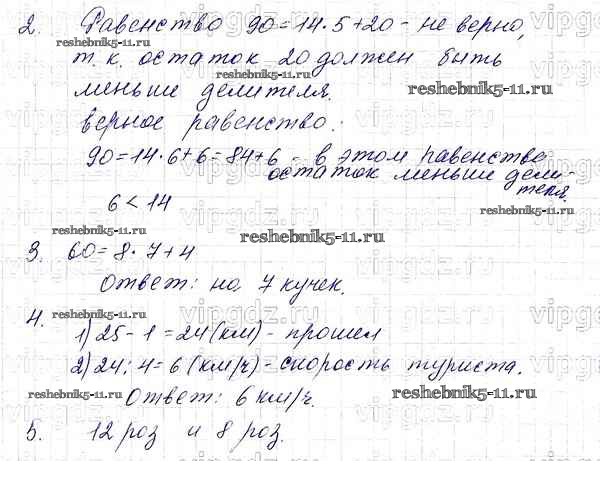 2. Равенство 90=14·5+20 - не верно,
т.к. остаток 20 должен быть
меньше делителя.
верное равенство:
90=14·6+6=84+6 - в этом равенстве
остаток меньше дели-
теля.
6 < 14
3. 60=8·7+4
Ответ: на 7 кучек.
4.
1) 25-1=24(км) - прошел
2) 24:4=6(км/ч) - скорость туриста.
Ответ: 6 км/ч.
5. 12 роз и 8 роз.
reshebnik5-11.ru
reshebnik5-11.ru
reshebnik5-11.ru
reshebnik5-11.ru
reshebnik5-11.ru
reshebnik5-11.ru
reshebnik5-11.ru
reshebnik5-11.ru
reshebnik5-11.ru
vipgdz.ru